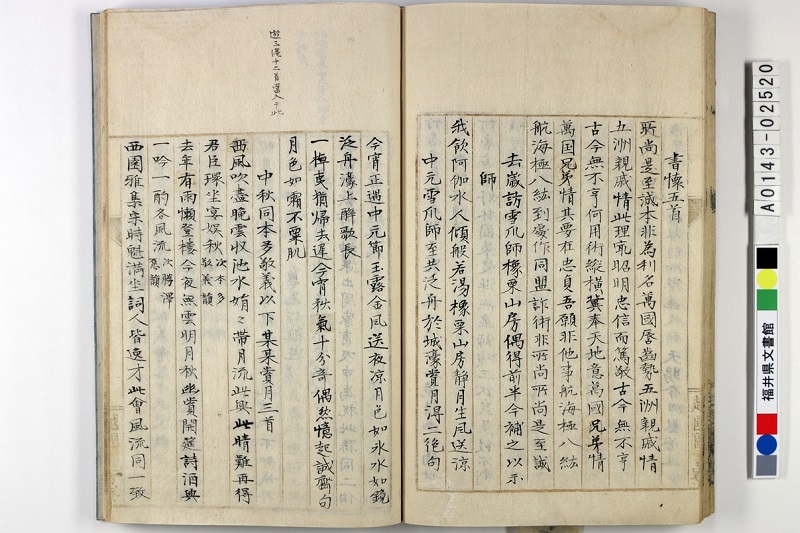 書懐五首
所尚是至誠本非為利名萬國唇歯勢五洲親戚情
五洲親戚情此理乾昭明忠信而篤敬古今無不亨
古今無不亨何用術縦横冀奉天地意萬國兄弟情
萬国兄弟情其要在忠貞吾願非他事航海極八紘
航海極八紘到處作同盟詐術非所尚所尚是至誠
去歳訪雪爪師橡栗山房偶得前半今補之以示
師
我飲阿伽水人傾般若湯橡栗山房静月生風送涼
中元雪爪師至共泛舟於城濠賞月得二絶句
今宵正遇中元節玉露金風送夜凉月色如氷水如鏡
泛舟濠上酔歌長
一梅夷猶帰去遅今宵秋氣十分奇偶然憶起誠齋句
月色如霜不粟肌
中秋同本多敬義以下某某賞月三首
西風吹盡晩雲収池水娟々帯月流此興此晴難再得
君臣環坐宴娯秋 次本多敬義韻
去年有雨懶登樓今夜無雲明月秋幽賞開筵詩酒興
一吟一酌各風流 次勝澤
西園雅集宋時魁満坐詞人皆逸才此會風流同一致
遊三僊十二首當入于此
A0143-02520
福井県文書館